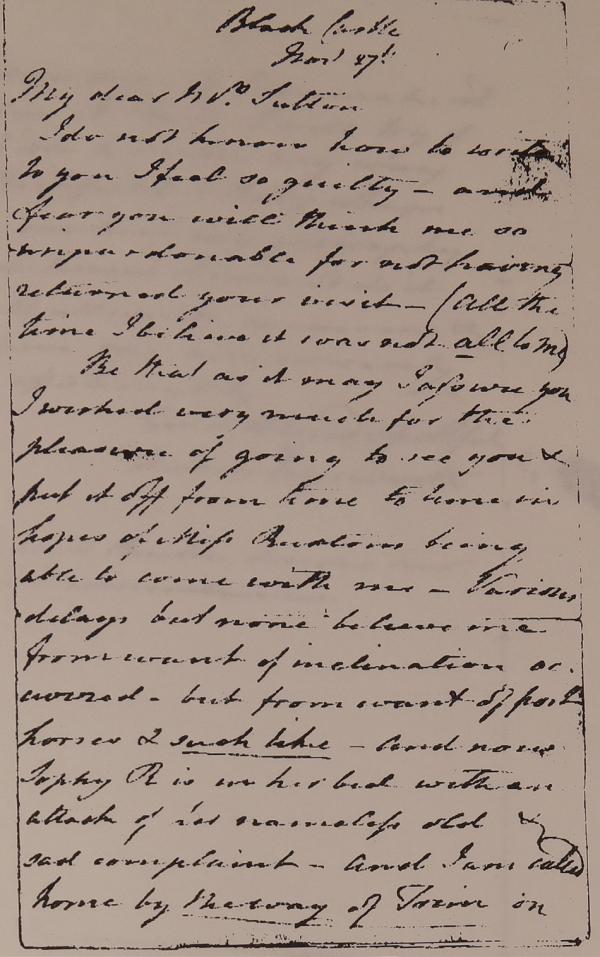 Black Castle
Novr 27th
My dear Mrs. Sutton
I do not know how to write
to you I feel so guilty - and
fear you will think me so
unpardonable for not having
returned your visit - (All the
time I believe it was not all to me)
Be that as it may I assure you
I wished very much for the
pleasure of going to see you &
put it off from time to time in
hopes of Miss Ruxtons being
able to come with me - Various
delays but none believe me
from want of inclination oc-
curred - but from want of post
horses & such like - and now
Sophy R is in her bed with an
attack of its nameless old &
sad complaint - And I am called
home by the way of Trim on